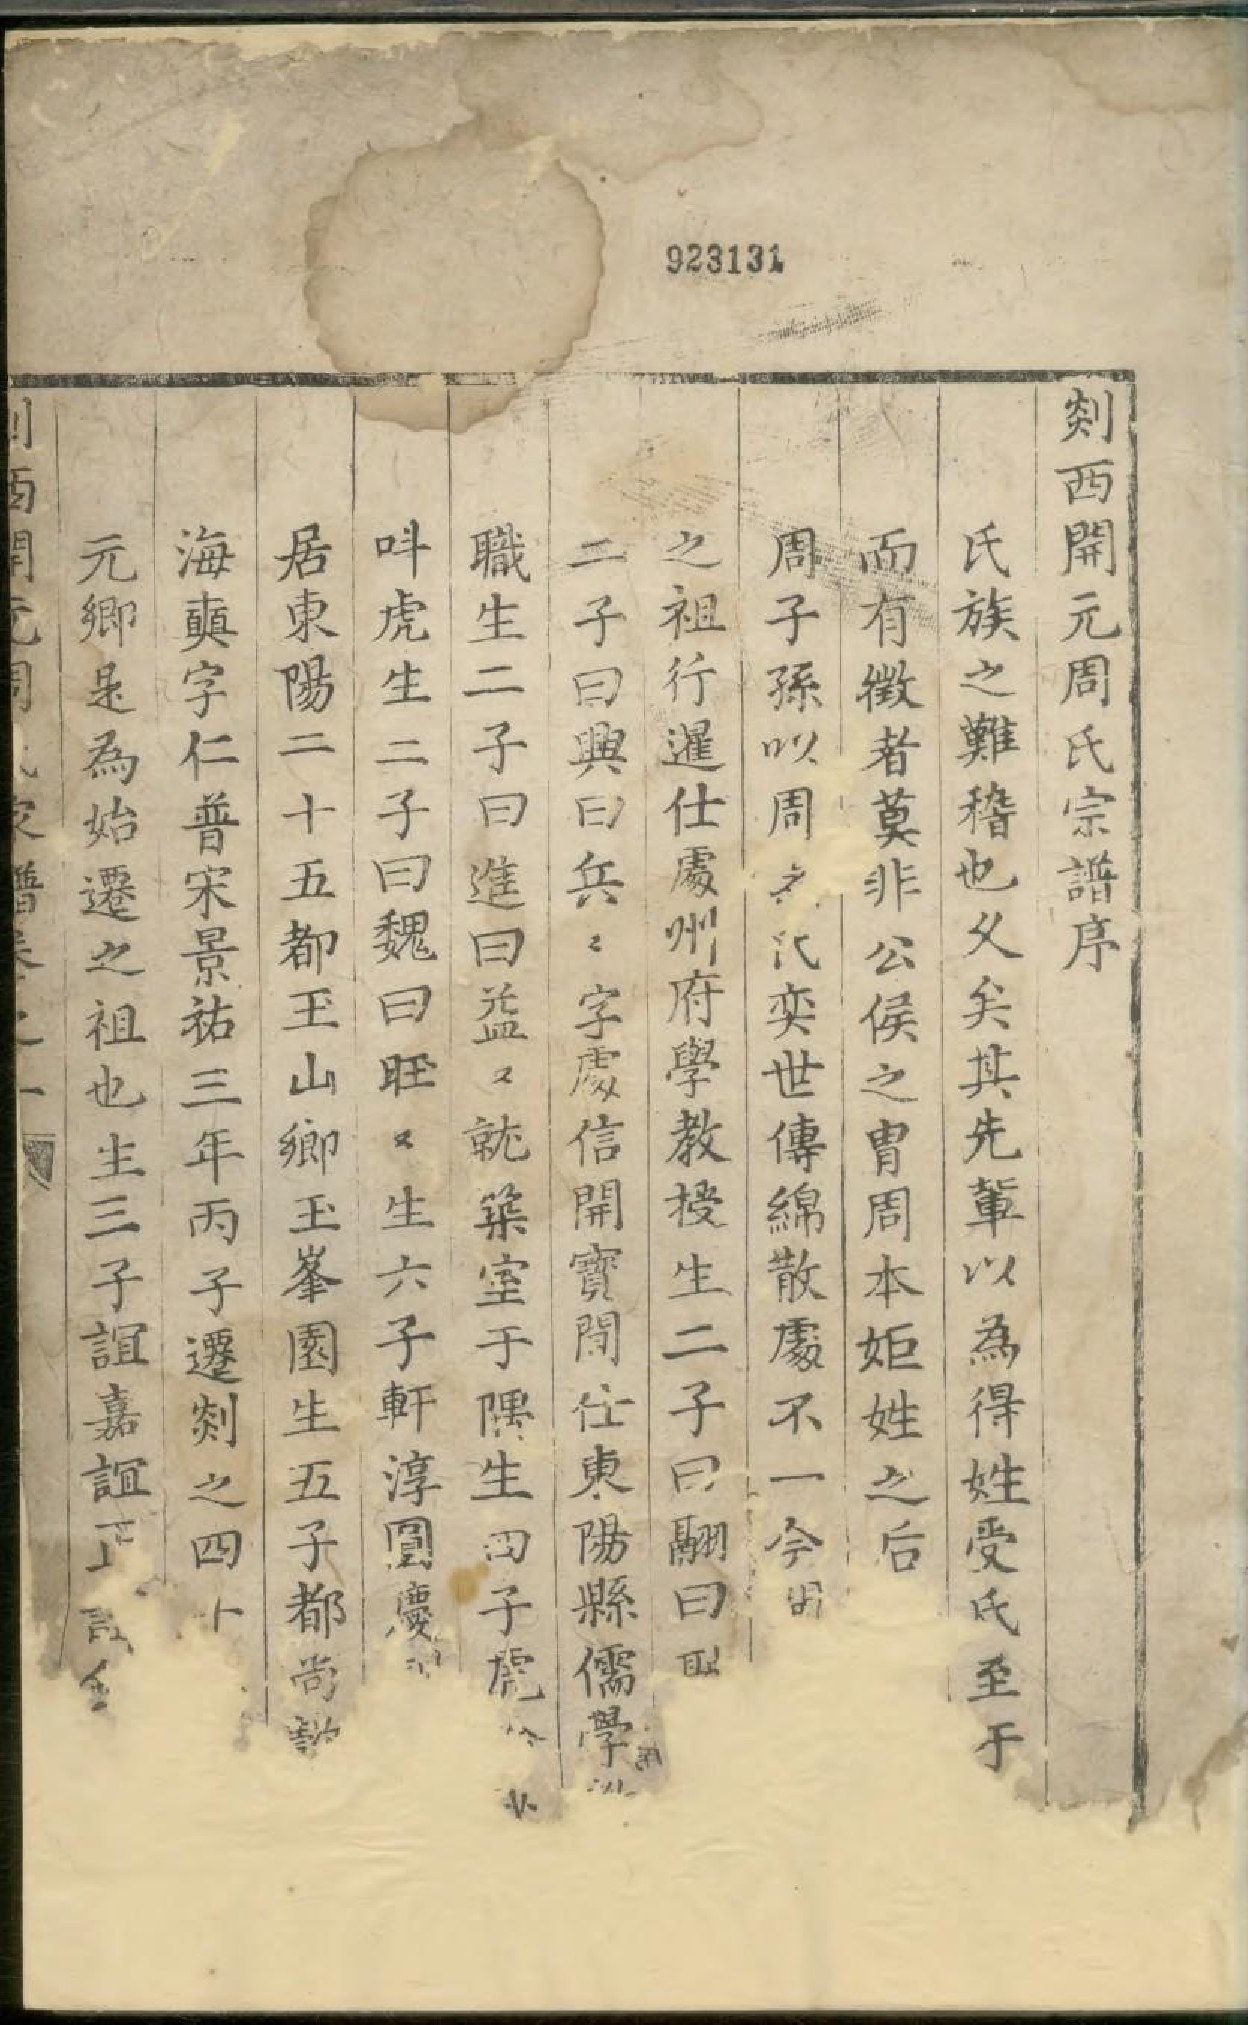 923131
剡西開元周氏宗譜序
氏族之難稽也乆矣其先軰以為得姓受氏至于
而有徵者莫非公侯之胄周本姫姓之后
周子孫以周之氏奕世傳綿散處不一今
之祖行暹仕處州府學教授生二子曰翮曰
二子曰興曰兵〻字處信開寶間仕東陽縣儒學
職生二子曰進曰益〻就築室于隅生四子虎
呌虎生二子曰魏曰旺〻生六子軒淳圓慶
居東陽二十五都玉山鄉玉峯園生五子都尚
海真字仁普宋景祐三年丙子遷剡之四十
元卿是為始遷之祖也生三子誼嘉誼正
西開元周氏宗譜卷之一